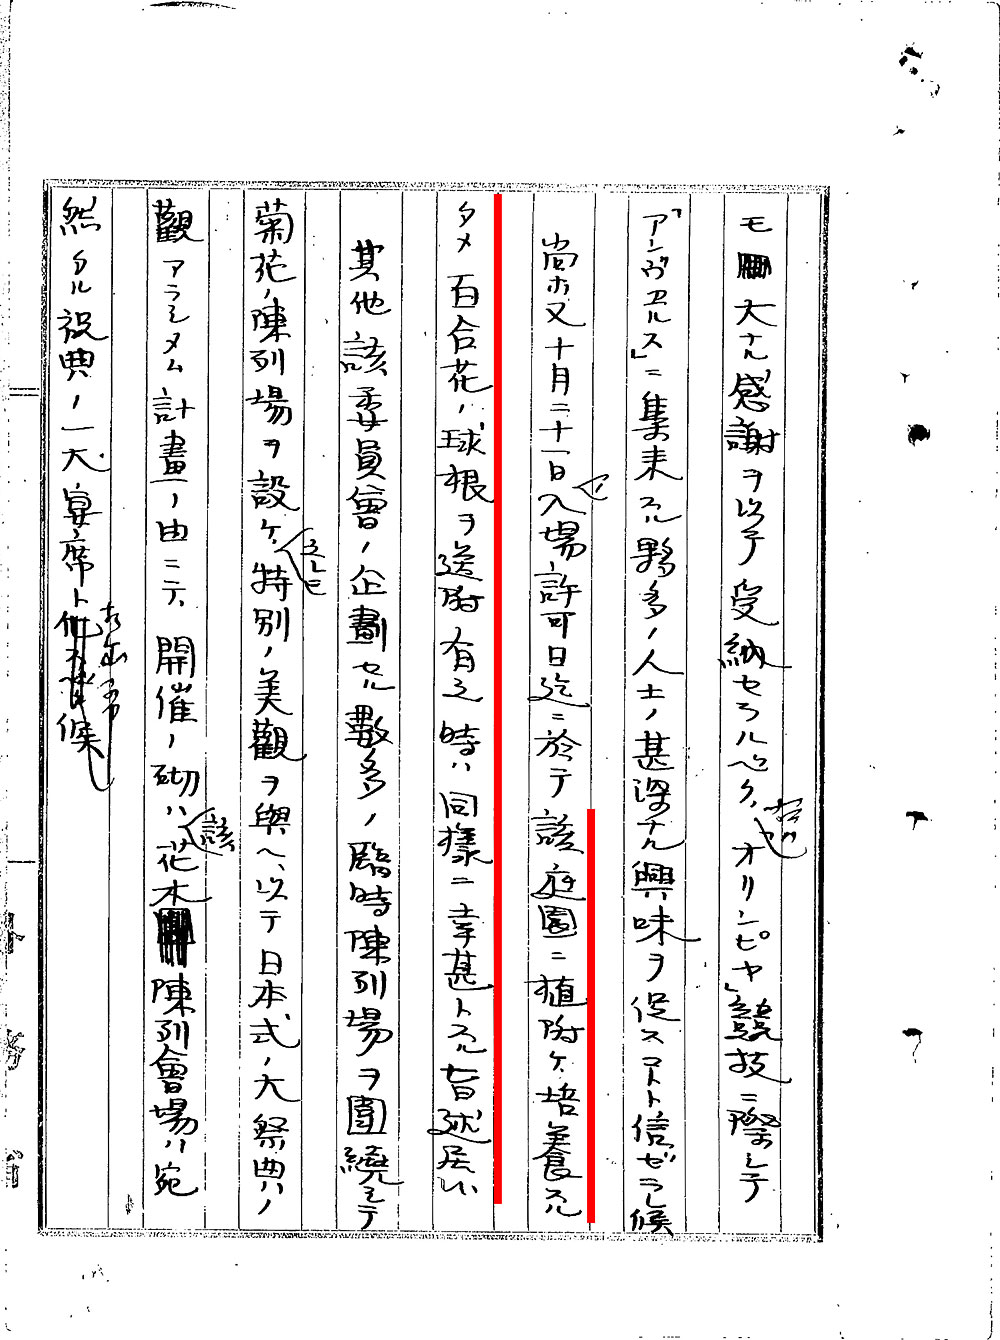 モ大ナル感謝ヲ以テ受納セラルベク、オリンピヤ」競技ニ際シテ
「アンヴエルス」ニ集来スル夥多ノ人士ノ甚深ナル興味ヲ促スコトト信ゼラレ候
尚ホ又十月二十一日ノ入場許可日迄ニ於テ該庭園ニ植附ケ培養スル
タメ百合花ノ球根ヲ送附有之時ハ同様ニ幸甚トスル旨述居レリ
其他該委員會ノ企劃セル數多ノ臨時陳列場ヲ圍繞シテ
菊花ノ陳列場ヲ設ケ、之レニ特別ノ美觀ヲ與ヘ、以テ日本式ノ大祭典ノ
觀アラシメム計畫ノ由ニテ、開催ノ砌ハ該花木陳列會場ハ宛
然タル祝典ノ一大宴席ト候